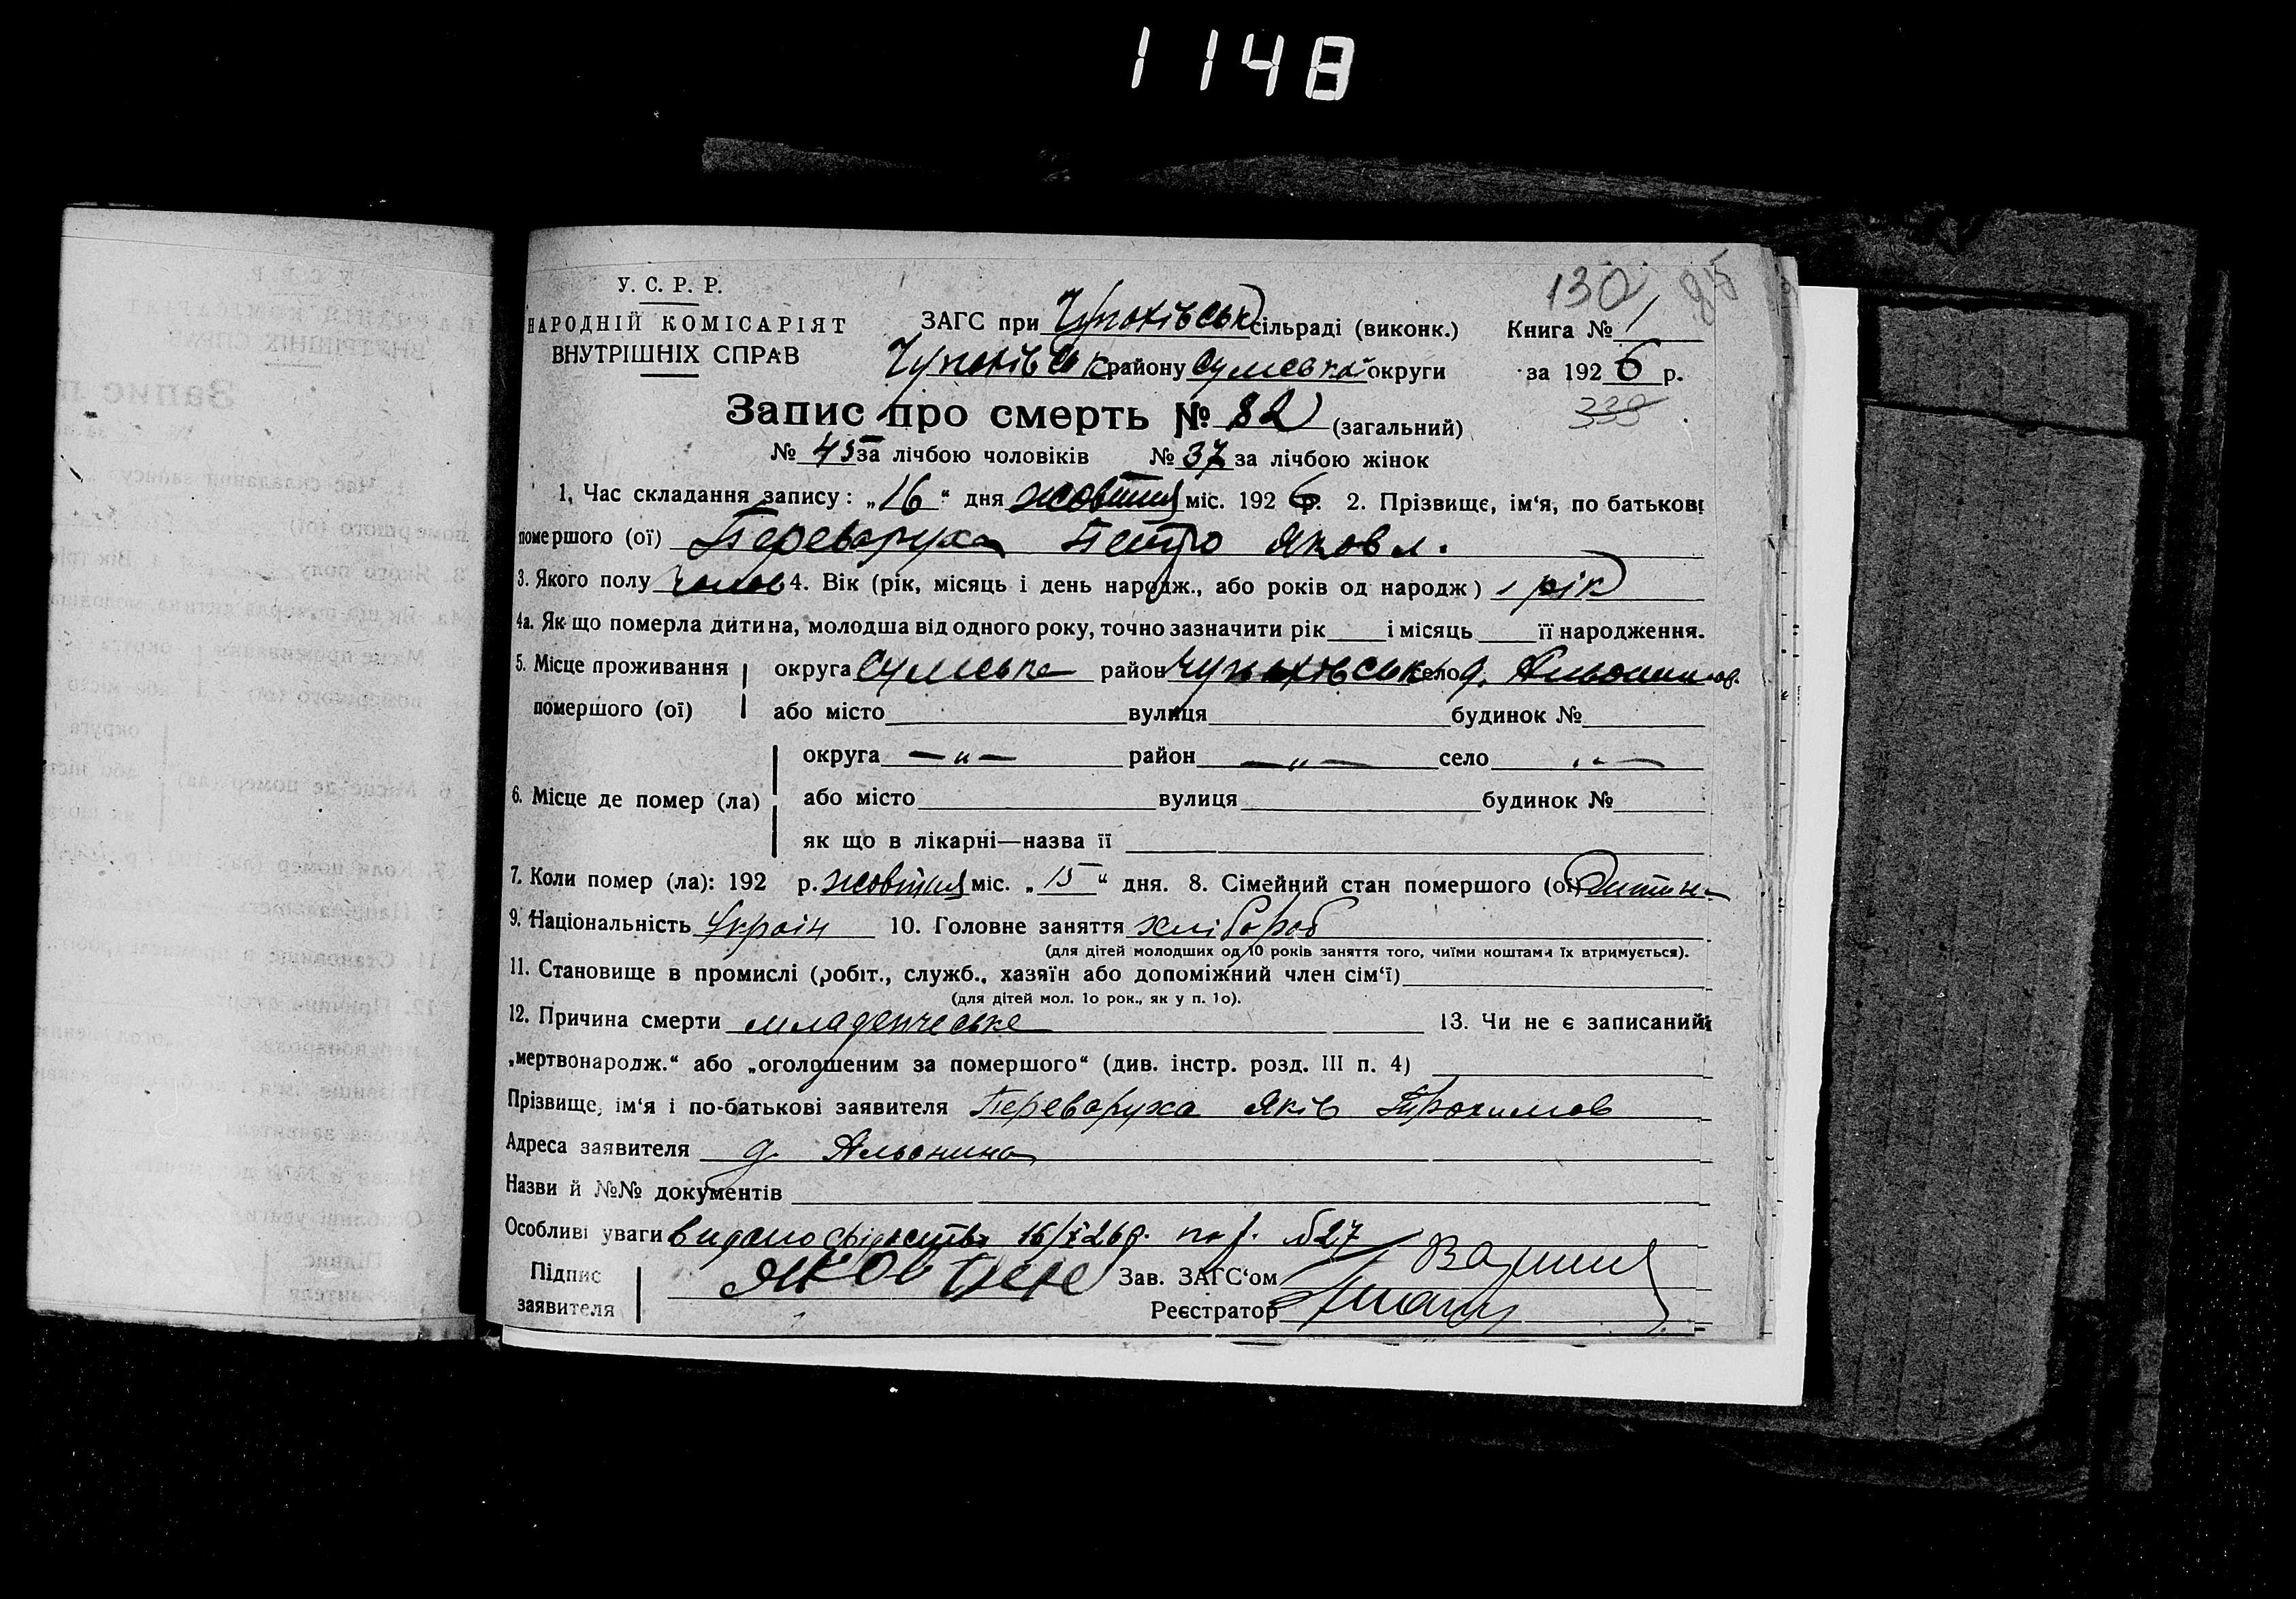 1148
130 95
У. С. Р. Р.
НАРОДНІЙ КОМІСАРІЯТ
ВНУТРІШНІХ СПРАВ
ЗАГС при Чупахівськ сільраді (виконк.) Книга № 1
Чупахівськ району Сумської округи за 1926 р.
Запис про смерть № 82 (загальний) 338
№ 45 за лічбою чоловіків № 37 за лічбою жінок
1, Час складання запису: „16“ дня жовтня міс. 1926 р. 2. Прізвище, ім‘я, по батькові
помершого (ої) Переваруха Петро Яковл.
3. Якого полу чолов 4. Вік (рік, місяць і день народж., або років од народж) 1 рік
4а. Як що померла дитина, молодша від одного року, точно зазначити рік і місяць її народження.
5. Місце проживання помершого (ої) округа Сумська район Чупахівськ село д.
або місто вулиця будинок №
округа —„— район —„— село —„—
6. Місце де помер (ла) або місто вулиця будинок №
як що в лікарні—назва її
7. Коли помер (ла): 192 р. жовтня міс. „15“ дня. 8. Сімейний стан помершого (ої) дитина
9. Національність Україн 10. Головне заняття хлібороб
(для дітей молодших од 10 років заняття того, чиїми коштами їх втримується).
11. Становище в промислі (робіт., служб., хазяїн або допоміжний член сім‘ї)
(для дітей мол. 10 рок., як у п. 10).
12. Причина смерти младенческе 13. Чи не є записаний
„мертвонародж.“ або „оголошеним за помершого“ (див. інстр. розд. III п. 4)
Прізвище, ім‘я і по-батькові заявителя Переваруха Яків Трохимов
Адреса заявителя д. Альонина
Назви й №№ документів
Особливі уваги видано свідоцтво 16/X 26р. по р. №27
Підпис заявителя Зав. ЗАГС‘ом
Реєстратор